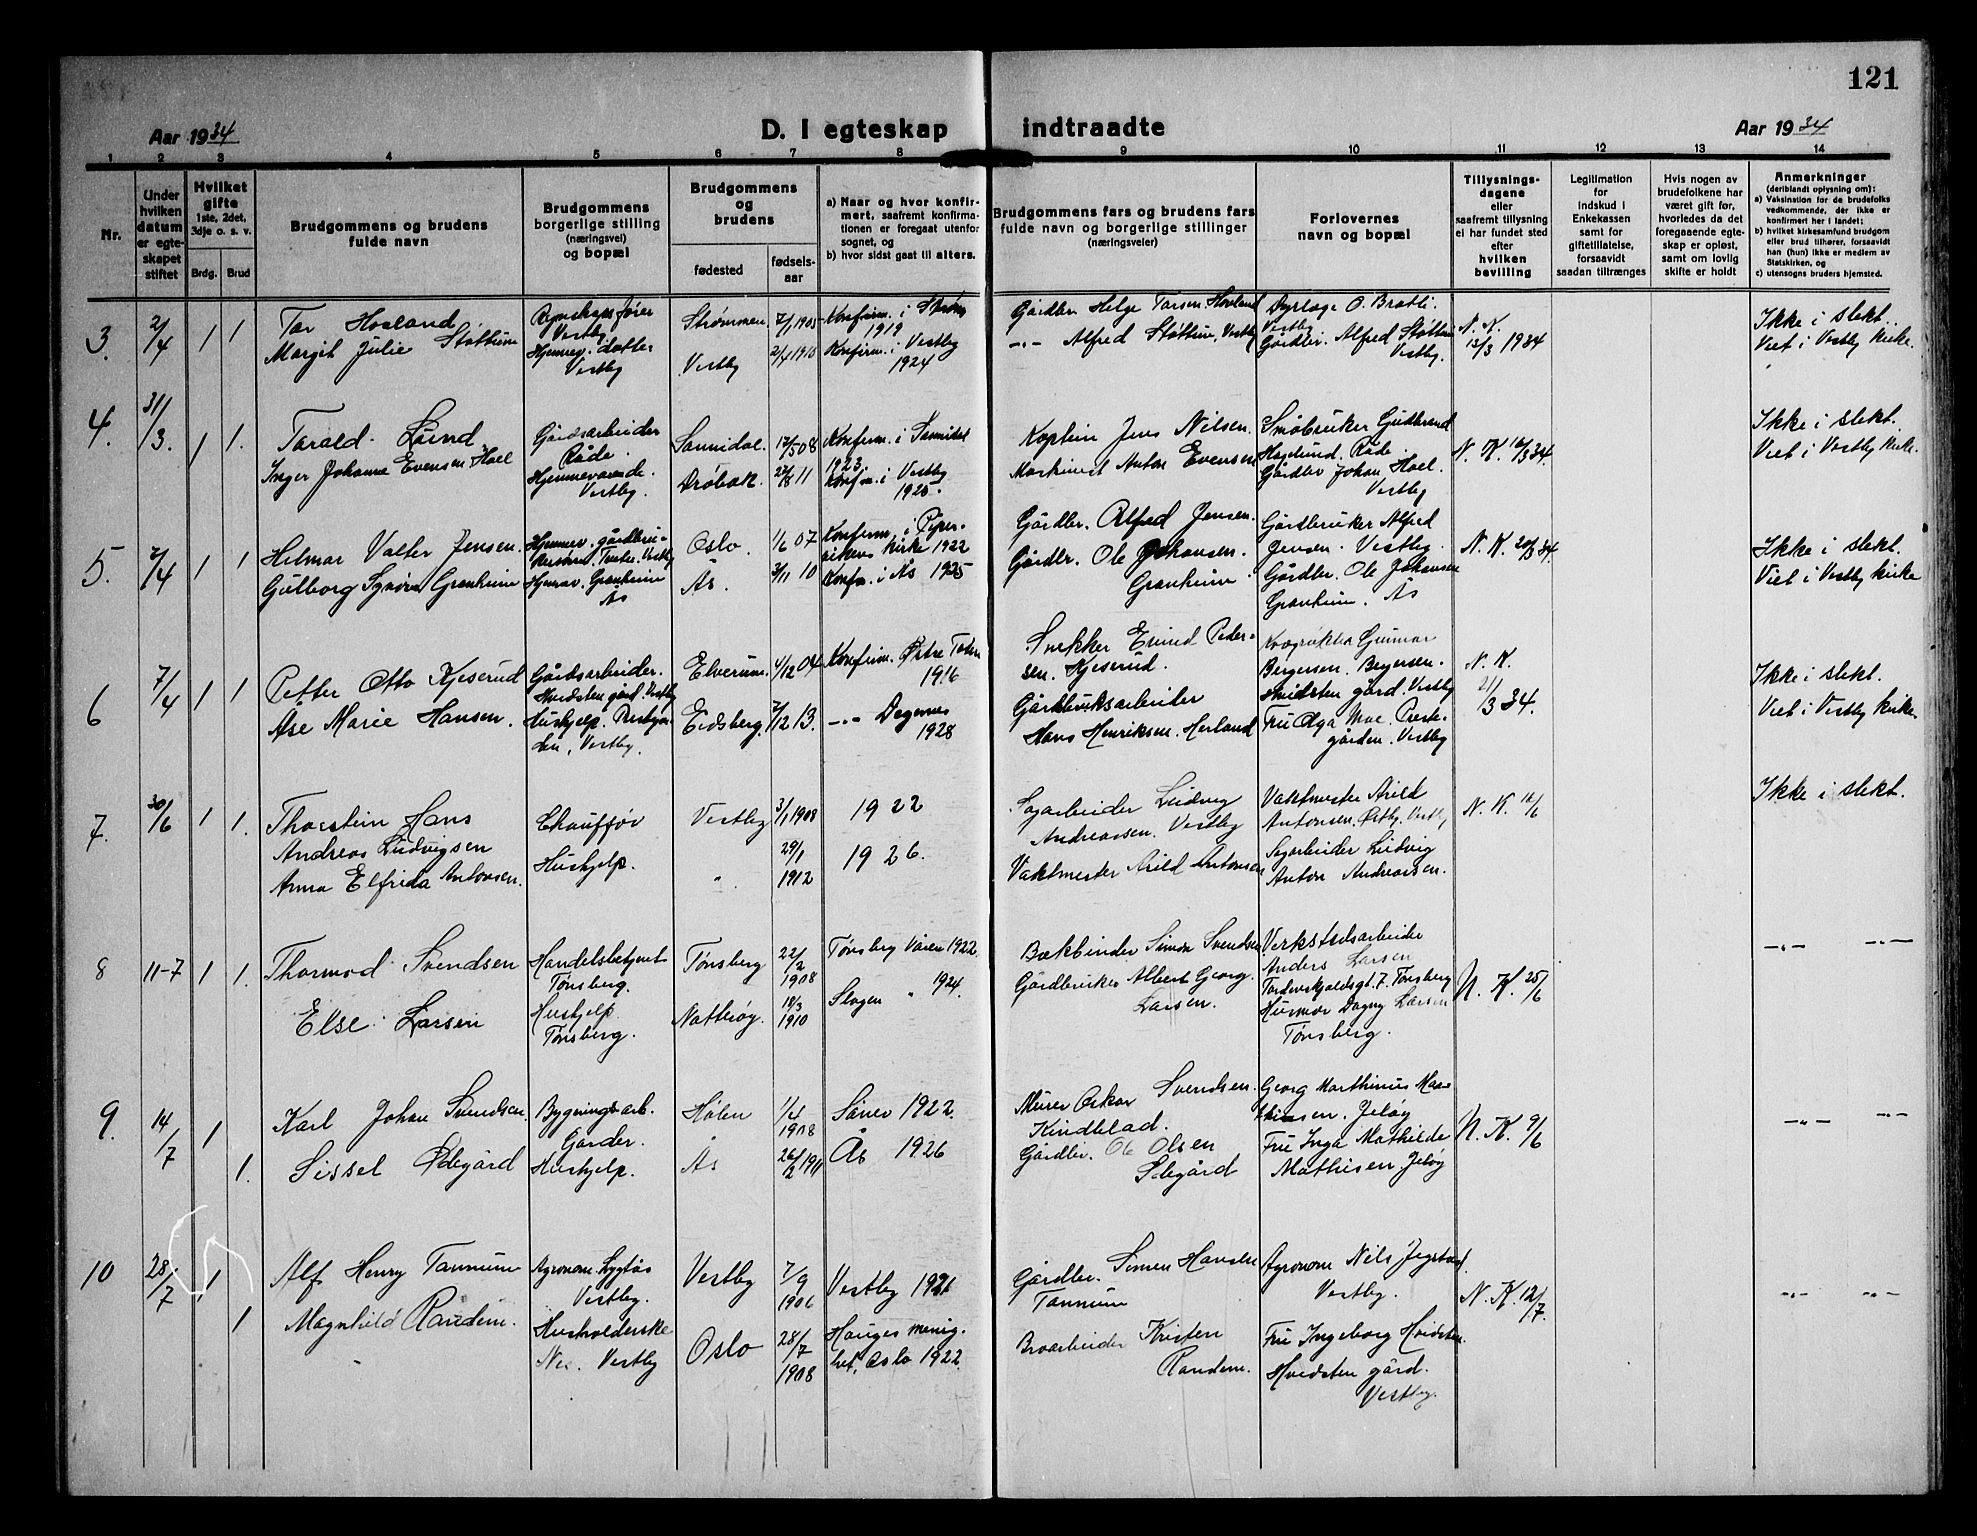 121
Aar 1934
D. I egteskap indtraadte
Aar 1934
1 2 3 4 5 6 7 8 9 10 11 12 13 14
Nr.
Under hvilken datum er egteskapet stiftet
Hvilket gifte 1ste, 2det, 3dje o. s. v.
Brdg. Brud
Brudgommens og brudens fulde navn
Brudgommens borgerlige stilling (næringsvei) og bopæl
Brudgommens og brudens
fødested
fødselsaar
a) Naar og hvor konfirmert, saafremt konfirmationen er foregaat utenfor sognet, og
b) hvor sidst gaat til alters.
Brudgommens fars og brudens fars fulde navn og borgerlige stillinger (næringsveier)
Forlovernes navn og bopæl
Tillysningsdagene eller saafremt tillysning ei har fundet sted efter hvilken bevilling
Legitimation for indskud i Enkekassen samt for giftetillatelse, forsaavidt saadan tiltrænges
Hvis nogen av brudefolkene har været gift før, hvorledes da det foregaaende egteskap er opløst, samt om lovlig skifte er holdt
Anmerkninger (deriblandt oplysning om):
a) Vaksination for de brudefolks vedkommende, der ikke er konfirmert her i landet;
b) hvilket kirkesamfund brudgom eller brud tilhører, forsaavidt han (hun) ikke er medlem av Statskirken, og
c) utensogns bruders hjemsted.
3. 2/4 1 1
Tor Hovland
Margit Julie Støttum
Vestby
Hjemmev. datter
Vestby
Strømmen 7/1 1905
Vestby 2/4
Konfirm. i
1919
Konfirm. i Vestby
1924
Gårdbr. Helge Hovland
-"- Alfred Støttum, Vestby
Dyrlæge O. Bratli.
Vestby
Gårdbr. Alfred Støttum
Vestby.
N. K.
13/3 1934
Ikke i slekt.
Viet i Vestby kirke.
4. 31/3. 1 1.
Tarald Lund
Inger Johanne Evensen Hoel
Gårdsarbeider
Råde.
Hjemmeværende.
Vestby.
Sannidal. 17/5 08
Drøbak. 11
Konfirm. i Sannidal
1923.
Konfirm. i Vestby
1925.
Kaptein Jens Nilsen.
Maskinist Anton Evensen
Småbruker Gudbrand
Haglund. Råde.
Gårdbr Johan Hoel.
Vestby
N. K. 16/3 34.
Ikke i slekt.
Viet i Vestby kirke.
5. 7/4 1 1
Hilmar Valter Jensen.
Gulborg Synøve Granheim
Hjemmev.
Hjemmev. Granheim
Ås
Oslo. 1/6 07
Ås. 3/11 10
Konfirm. i Piperviken
kirke 1922
Konfirm. i Ås 1925
Gårdbr. Alfred Jensen.
Gårdbr. Ole Johansen.
Granheim.
Gårdbruker Alfred
Jensen. Vestby.
Gårdbr. Ole Johansen
Granheim. Ås
N. K. 20/3 34.
Ikke i slekt.
Viet i Vestby kirke
6 7/4 1 1
Petter Otto Kjeserud
Åse Marie Hansen.
Gårdsarbeider.
Hvidsten gård. Vestby
Hushjelp. Prestegården,
Vestby.
Elverum. 4/12 04
Eidsberg. 7/12 13.
Konfirm. Østre Toten
1916
-"- Degernes
1928
Snekker Peder-
sen. Kjeserud.
Gårdbruksarbeider
Hans Henriksen. Herland
Gunnar
Bergersen. Bergersen.
Hvidsten gård. Vestby
Fru Olga Moe. Preste-
gården. Vestby
N. K.
21/3 34.
Ikke i slekt.
Viet i Vestby kirke.
7. 30/6 1 1.
Thorstein Hans
Andreas Ludvigsen
Anna Elfrida Antonsen.
Chauffør
Hushjelp.
Vestby 3/1 1908
" 29/1 1912
1922
1926.
Sagarbeider Ludvig
Andreassen. Vestby
Vaktmester Arild Antonsen
Vaktmester Arild
Antonsen. Østby. Vestby
Sagarbeider Ludvig
Anton Andreassen.
N. K. 16/6
Ikke i slekt.
8 11-7 1 1.
Thormod Svendsen
Else Larsen
Handelsbetjent
Tønsberg.
Hushjelp.
Tønsberg.
Tønsberg 22/2 1908
Nøtterøy. 18/3 1910
Tønsberg Våren 1922.
Slagen " 1924.
Bokbinder Simon Svendsen
Gårdbruker Albert Georg
Larsen.
Verkstedsarbeider
Anders Larsen
Tordenskjoldsgt. 7. Tønsberg
Husmor Dagny Larsen
Tønsberg.
N. K. 25/6
-"- -"-
9. 14/7 1 1.
Karl Johan Svendsen
Sissel Ødegård
Bygningsarb.
Garder.
Hushjelp.
Hølen 1/4 1908
Ås 26/2 1911
Såner 1922.
Ås 1926
Murer Oskar Svendsen.
Kindblad.
Gårdbr. Ole Olsen
Ødegård
Georg Marthinius Mathisen.
Jeløy
Fru Inga Mathilde
Mathisen. Jeløy
N. K. 9/6
-"- -"-
10 28/7 1 1
Alf Henry Tannum
Magnhild Randem.
Agronom.
Vestby.
Husholderske
Nes. Vestby
Vestby 7/9 1906
Oslo 28/7 1908
Vestby 1921
Hauges menig.
het, Oslo 1922.
Gårdbr. Simen Hansen
Tannum
Kristen
Randem.
Agronom Nils
Vestby.
Fru Ingeborg Hvidsten.
Hvidsten gård.
Vestby.
N. K. 12/7.
-"- -"-